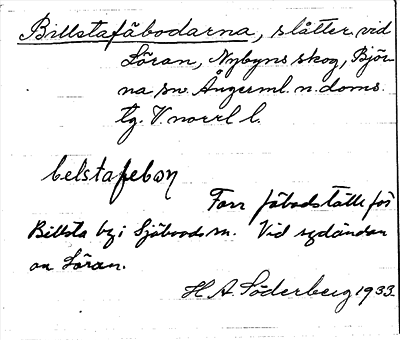 Billstafäbodarna, slåtter vid
Söran, Nybyns skog, Björ-
na sn. Ångerml. n. doms.
tg. V. norrl l.
belstafebon
Forr fäbodställe för
Billsta by i Själevads sn. Vid sydändan
av Söran.
H A. Söderberg 1933.